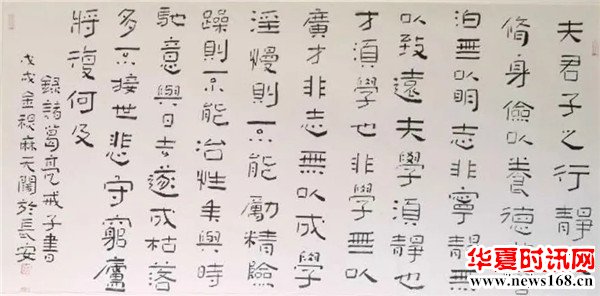 夫君子之行靜以
脩身儉以養德非
泊無以明志非寧靜無
以致遠夫學須靜也
才須學也非學無以
廣才非志無以成學
淫慢則不能勵精險
躁則不能治性年與時
馳意與日去遂成枯落
多不接世悲守窮廬
將復何及
錄諸葛亮戒子書
戊戌金禔麻天闊於長安
华夏时讯网
www.news168.cn